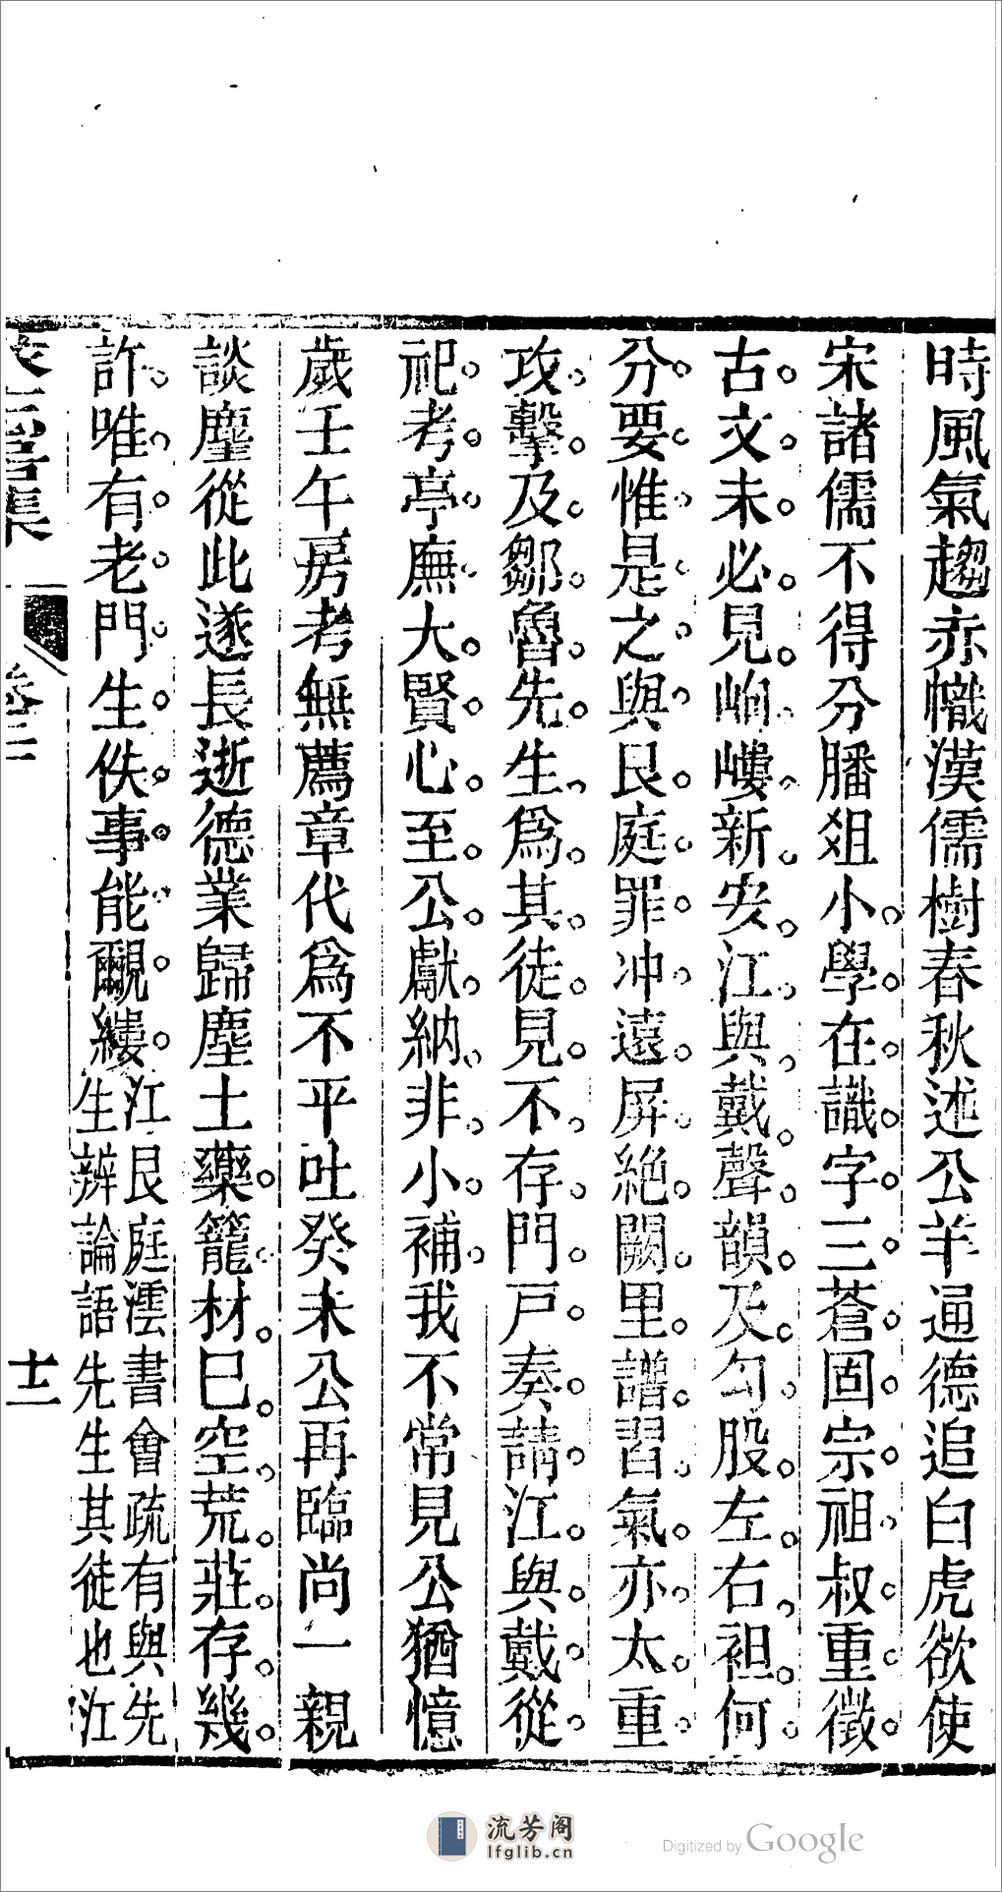 時風氣趨亦幟漢儒樹春秋述公羊通德追白虎欲使
宋諸儒不得分膰俎小學在識字三蒼固宗祖叔重徵
古文未必見岣嶁新安江與戴聲韻及勾股左右袒何
分要惟是之與艮庭罪沖遠屏絕闕里譜習氣亦太重
攻擊及鄒魯先生爲其徒見不存門戸奏請江與戴從
祀考亭廡大賢心至公獻納非小補我不常見公猶憶
歲壬午房考無薦章代爲不平吐癸未公再臨尚一親
談麈從此遂長逝德業歸塵土藥籠材已空荒莊存幾
許唯有老門生佚事能覼縷江艮庭澐書會疏有與先
生辨論語先生其徒也江
集
卷二
十二
流芳阁
lfglib.cn
Digitized by Google